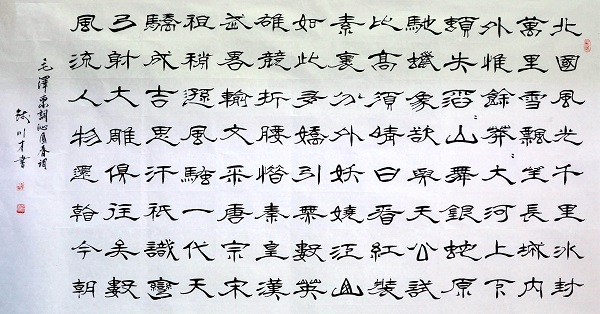 北國風光千里冰封
萬里雪飄望長城内
外惟餘莽〻大河上下
頓失滔〻山舞銀蛇原
馳蠟象欲與天公試
比高須晴日看紅裝
素裹分外妖嬈江山
如此多嬌引無數英
雄競折腰惜秦皇漢
武畧輸文采唐宗宋
祖稍遜風騷一代天
驕成吉思汗祇識彎
弓射大雕俱往矣數
風流人物還看今朝
毛澤東詞沁園春
川才書